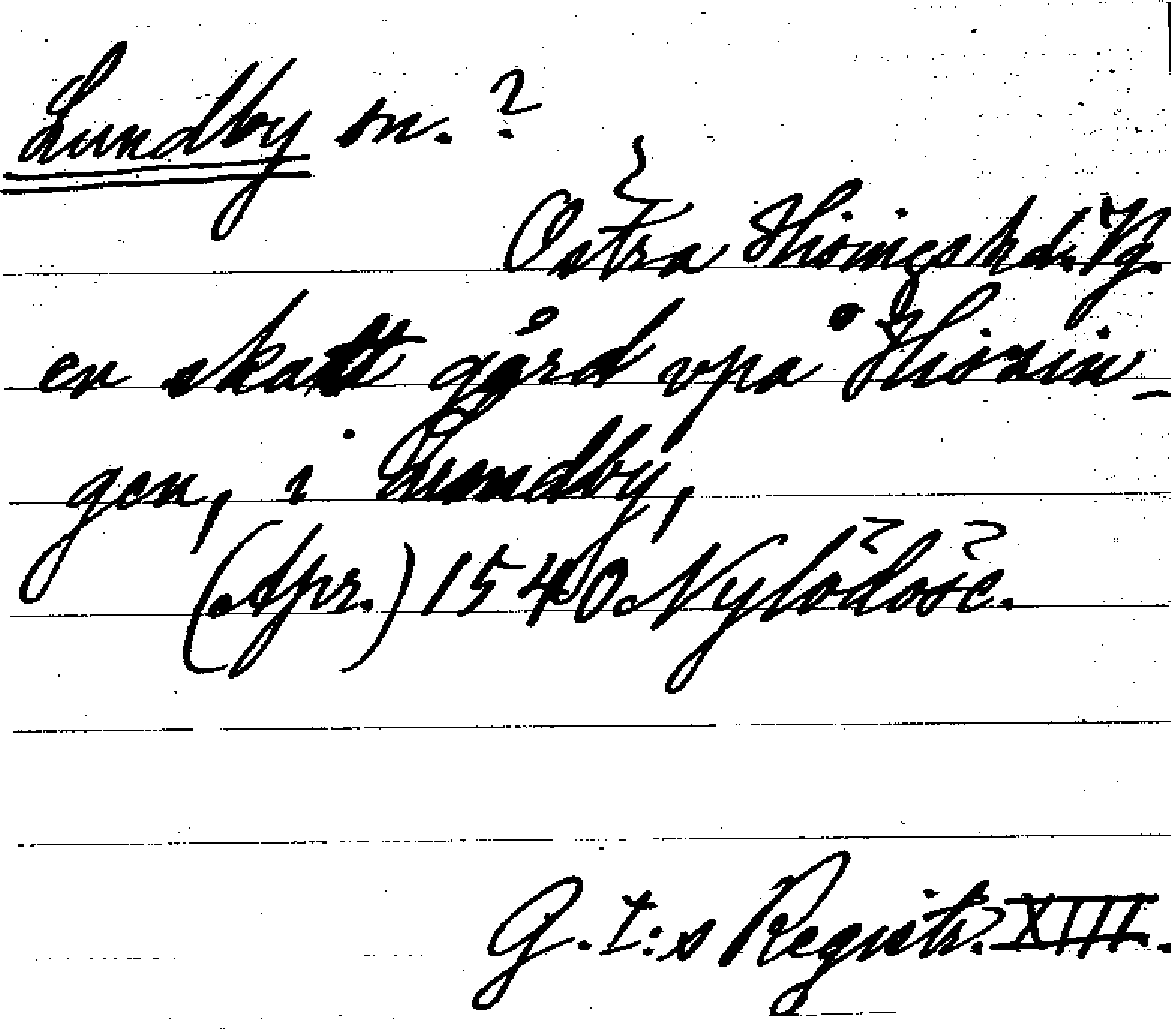 Lundby sn.?
Östra Hisings hd. Vg.
en skatt gård vpå Hissin-
gen, i Lundby,
(Apr.) 1540. Nylödöse.
G. I:s Registr. XIII.